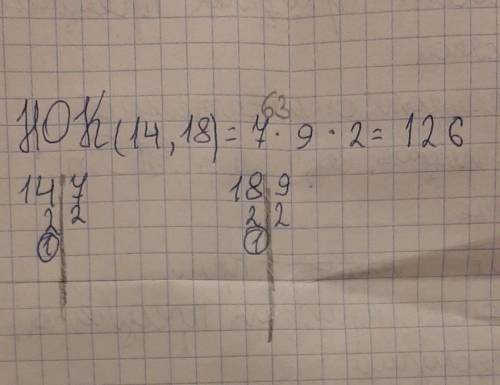 63
НОК(14,18) = 7 · 9 · 2 = 126
14 | 7 18 | 9
2 | 2 2 | 2
1 | 1 |